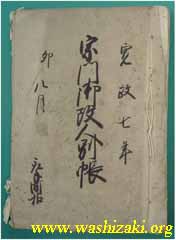 寛政七年
宗門御改人別帳
卯八月
www.washizaki.org